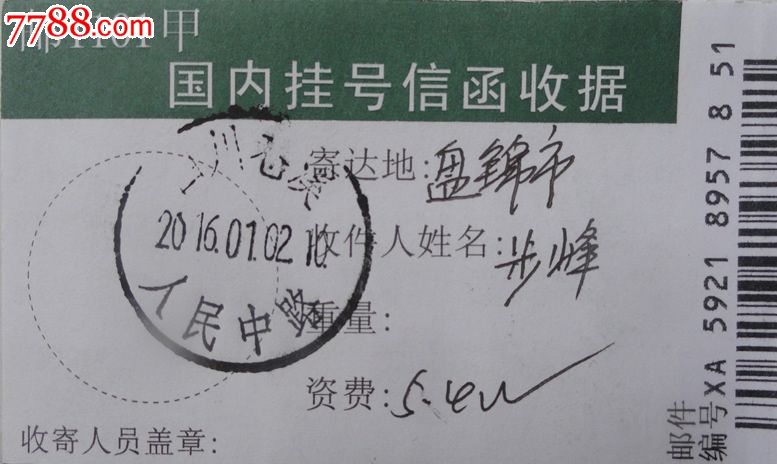 7788.com
邮1101甲
国内挂号信函收据
寄达地:盘锦市
收件人姓名:步峰
重量:
资费:5.40
收寄人员盖章:
2016.01.02.10
人民中路
邮件
编号XA 5921 8957 8 51